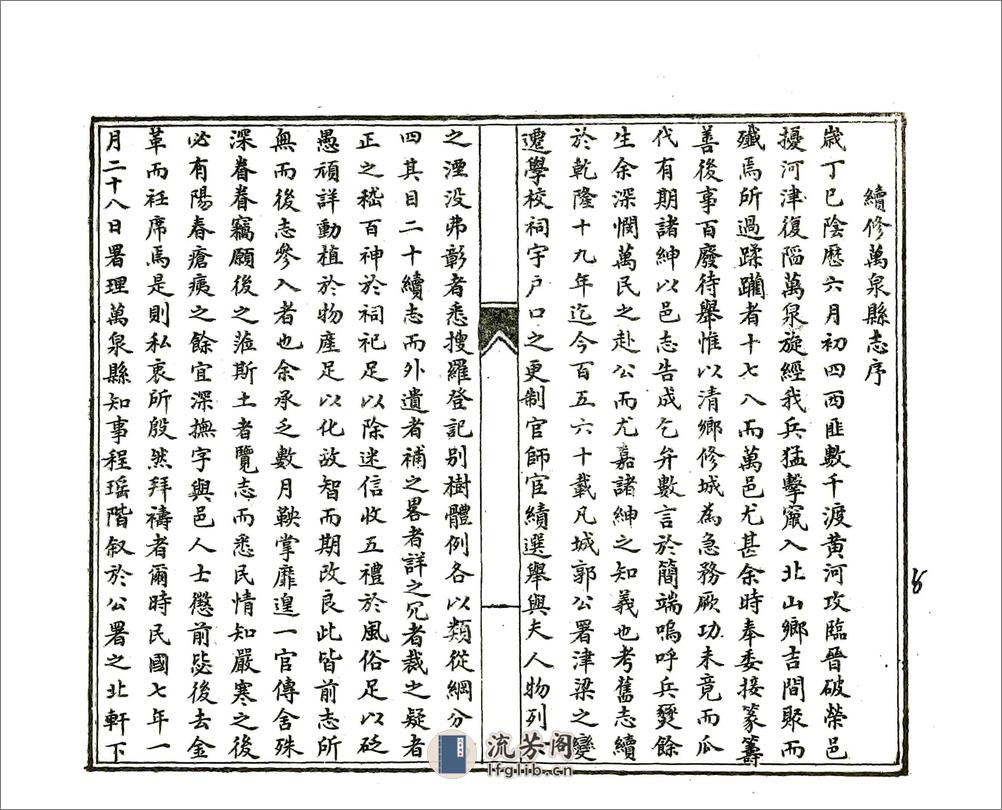 續修萬泉縣志序
歲丁巳陰曆六月初四西匪數千渡黃河攻臨晉破榮邑
擾河津復陷萬泉旋經我兵猛擊竄入北山鄉吉間聚而
殲焉所過蹂躪者十七八而萬邑尤甚余時奉委接篆籌
善後事百廢待舉惟以清鄉修城為急務厥功未竟而瓜
代有期諸紳以邑志告成乞弁數言於簡端嗚呼兵燹餘
生余深憫萬民之赴公而尤嘉諸紳之知義也考舊志續
於乾隆十九年迄今百五六十載凡城郭公署津梁之變
遷學校祠宇戶口之更制官師宦績選舉與夫人物列
之湮没弗彰者悉搜羅登記别樹體例各以類從綱分
四其目二十續志而外遺者補之畧者詳之冗者裁之疑者
正之嵇百神於祠祀足以除迷信收五禮於風俗足以砭
愚頑詳動植於物産足以化故智而期改良此皆前志所
無而後志參入者也余承乏數月鞅掌靡遑一官傳舍殊
深眷眷竊願後之蒞斯土者覽志而悉民情知嚴寒之後
必有陽春瘡痍之餘宜深撫字與邑人士懲前毖後去金
革而衽席焉是則私衷所殷然拜禱者爾時民國七年一
月二十八日署理萬泉縣知事程瑶階叙於公署之北軒下
流芳阁
lfglib.cn